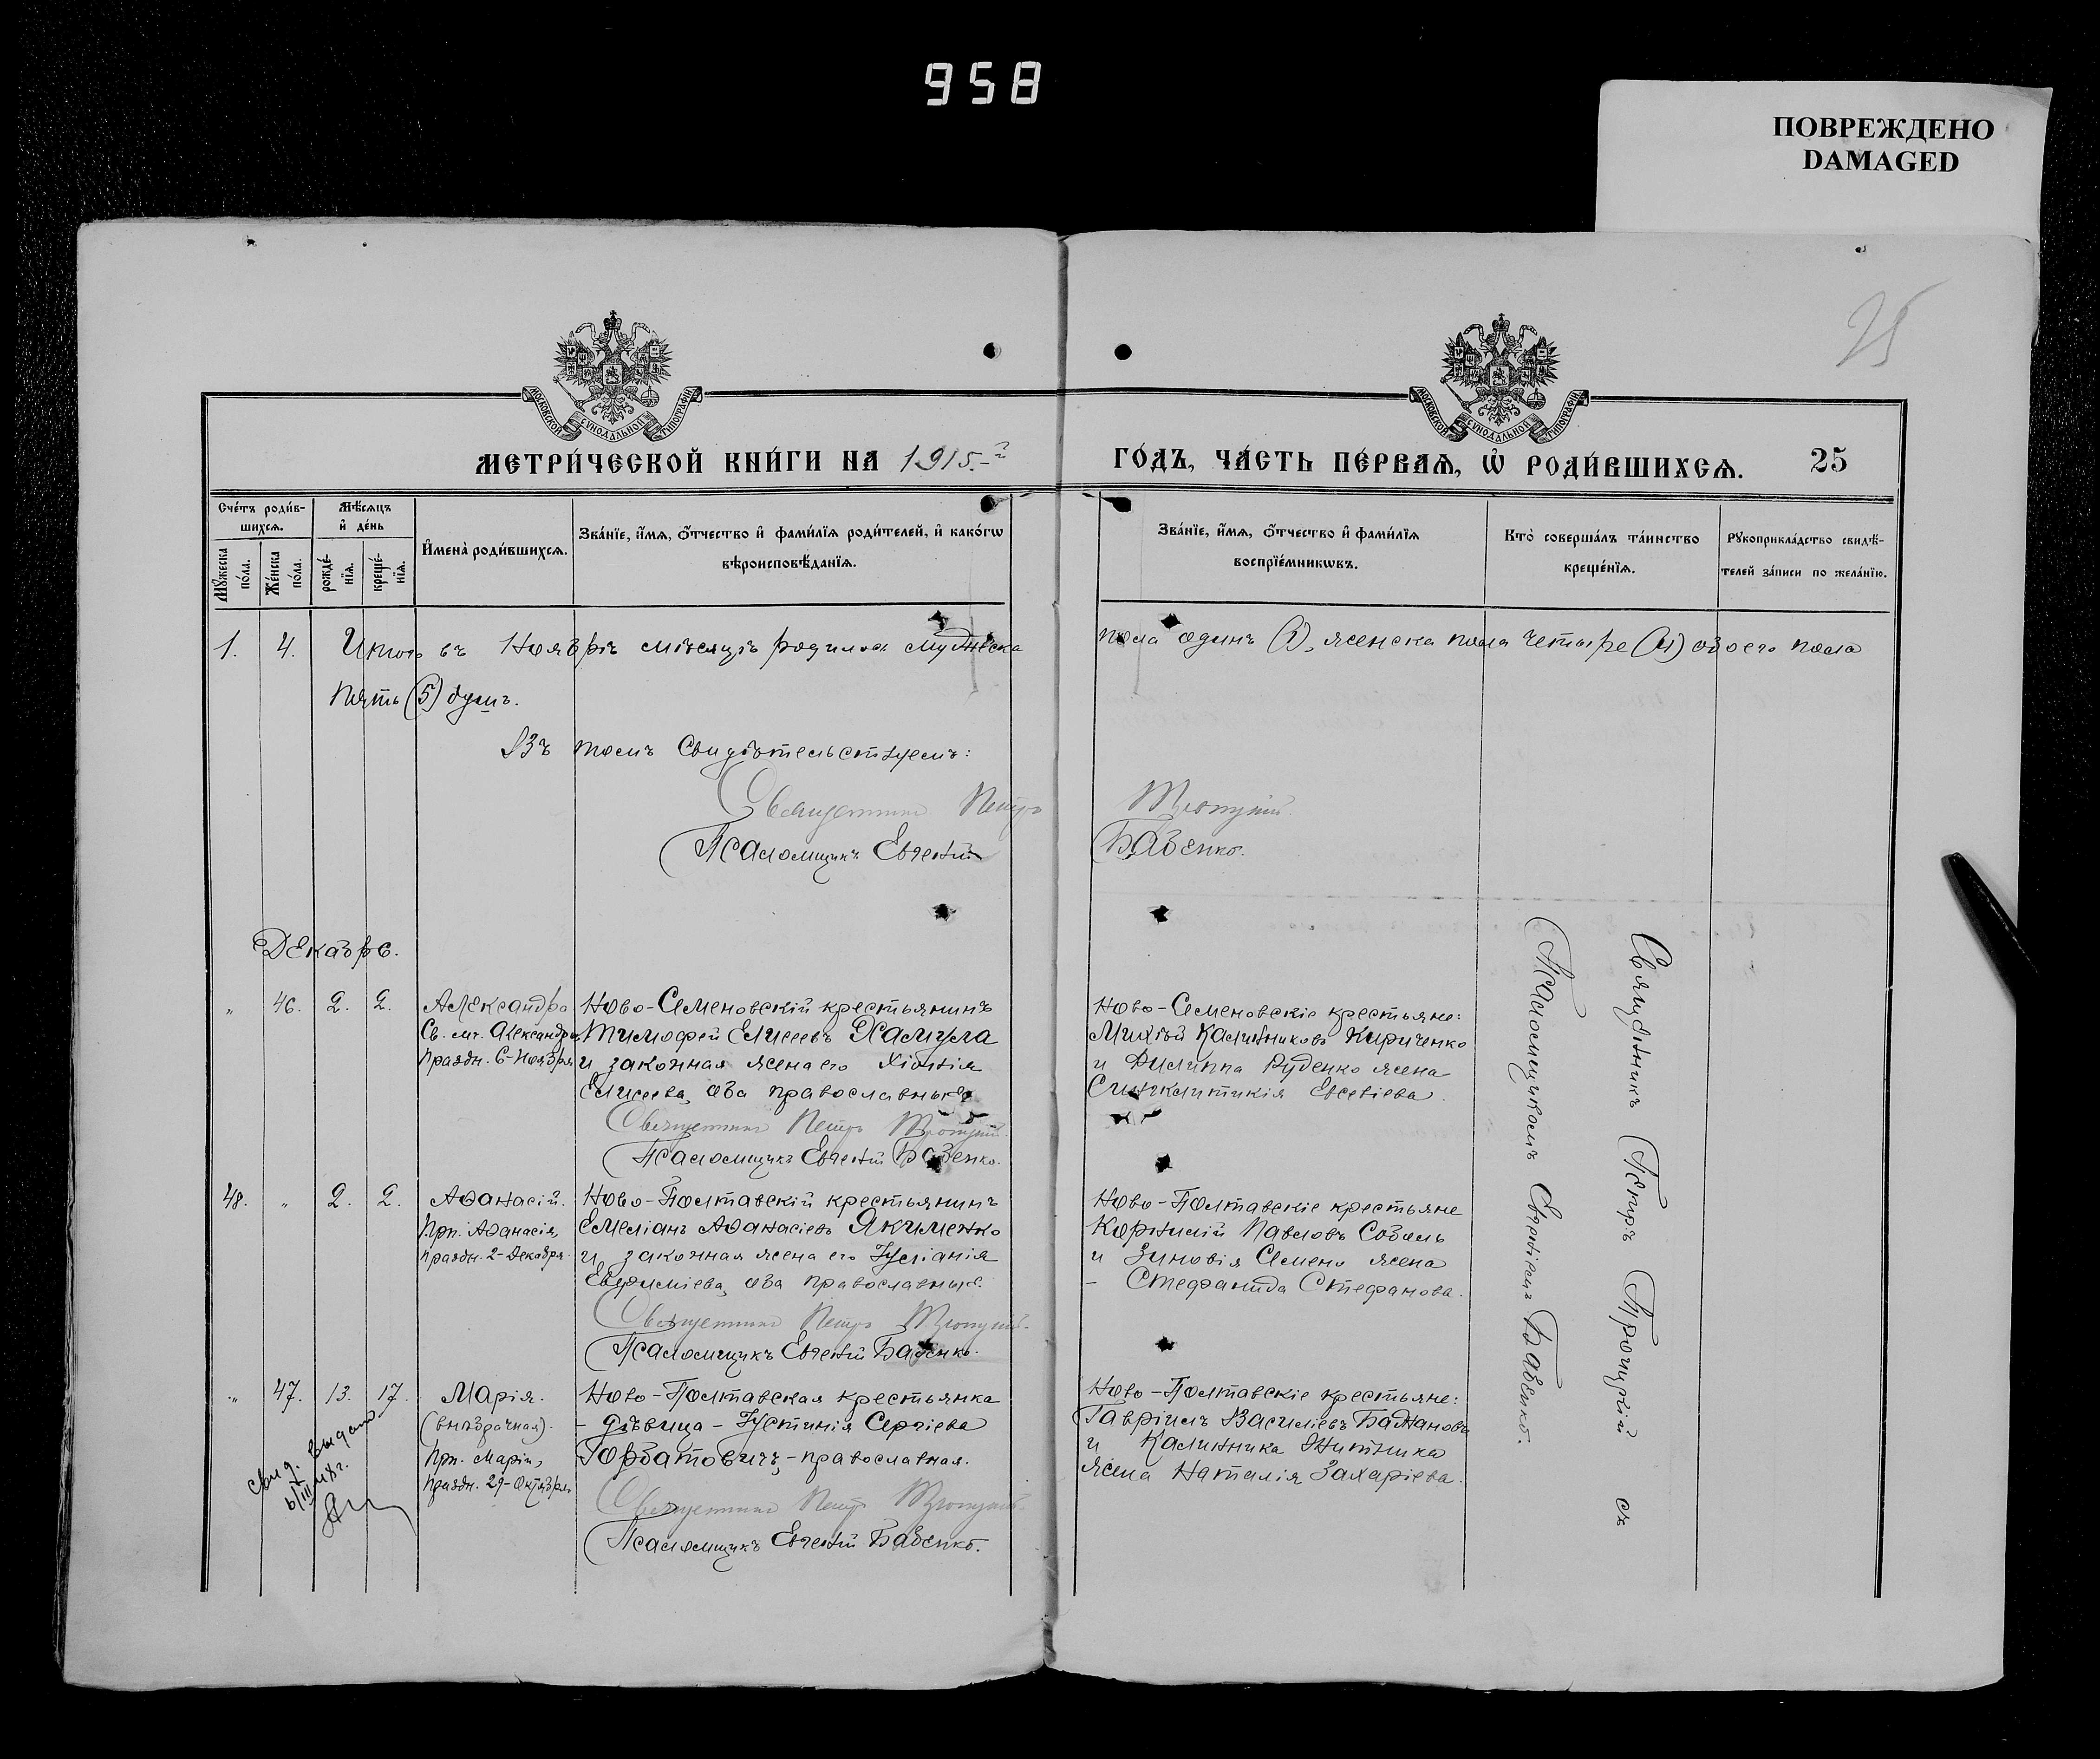 958
ПОВРЕЖДЕНО
DAMAGED
25
МОСКОВСКОЙ СѴНОДАЛЬНОЙ ТИПОГРАФІИ
МОСКОВСКОЙ СѴНОДАЛЬНОЙ ТИПОГРАФІИ
МЕТРИ́ЧЕСКОЙ КНИ́ГИ НА 1915.-й
ГО́ДЪ, ЧА́СТЬ ПЕ́РВАѦ, Ѿ РОДИ́ВШИХСѦ. 25
Сче́тъ роди́в-
шихсѧ.
Мꙋжеска по́ла.
Же́нска по́ла.
Мѣ́сѧцъ
и҆ де́нь
рожде́-
нїѧ.
креще́-
нїѧ.
И҆мена̀ роди́вшихсѧ.
Зва́нїе, и҆́мѧ, ѻ҆́тчество и҆ фами́лїѧ роди́телей, и҆ како́гѡ
вѣроисповѣ́данїѧ.
Зва́нїе, и҆́мѧ, ѻ҆́тчество и҆ фами́лїѧ
воспрїе́мникѡвъ.
Кто̀ соверша́лъ та́инство
креще́нїѧ.
Рꙋкоприкла́дство свидѣ́-
телей за́писи по жела́нїю.
1. 4. Итого въ Ноябрѣ мѣсяцѣ родилось мужеска пола одинъ (1), женска пола четыре (4) обоего пола
пять (5) душъ.
Въ томъ свидѣтельствуемъ:
Священникъ Петръ Троицкій.
Псаломщикъ Евгеній Бабенко.
Декабрь.
„ 46. 2. 2.
Александра
Св. мч. Александры,
праздн. 6-Ноября
Ново-Семеновскій крестьянинъ
Тимофей Елисеевъ
и законная жена его Хіонія
Елисеева, оба православные
Священникъ Петръ Троицкій.
Псаломщикъ Евгеній Бабенко.
Ново-Семеновскіе крестьяне:
Михѣй Калинниковъ Кириченко
и Филиппа Руденко жена
Синклитикія Евсевіева.
48. „ 2. 2.
Аѳанасій.
Прп. Аѳанасія,
праздн. 2-Декабря.
Ново-Полтавскій крестьянинъ
Емеліанъ Аѳанасіевъ Якименко
и законная жена его Іуліанія
Евфиміева, оба православные.
Священникъ Петръ Троицкій.
Псаломщикъ Евгеній Бабенко.
Ново-Полтавскіе крестьяне
Корнилій Павловъ Соболь
и Зиновія Семено жена
- Стефанида Стефанова.
„ 47. 13. 17.
Марія.
(внѣбрачная).
Прп. Маріи,
праздн. 29-Октября
Ново-Полтавская крестьянка
- дѣвица - Іустинія Сергіева
Горбатовичъ, - православная.
Священникъ Петръ Троицкій.
Псаломщикъ Евгеній Бабенко.
Ново-Полтавскіе крестьяне:
Гавріилъ Василіевъ Бажановъ
и Калинника Житника
жена Наталія Захаріева.
Свид. выдано
Священникъ Петръ Троицкій съ
Псаломщикомъ Евгеніемъ Бабенко.